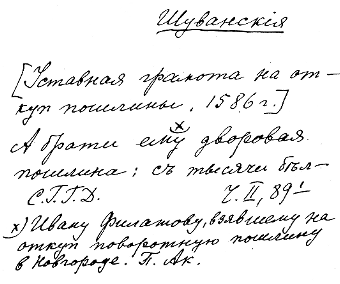 Шуванскія
[Уставная грамота на от-
куп пошлины, 1586 г.]
А брати ему x) дворовая
пошлина: съ тысячи бѣл-
С.Г.Г.Д. Ч. II, 89¹
x) Ивану Филатову, взявшему на
откуп поворотную пошлину
в Новгороде. П. Ак.